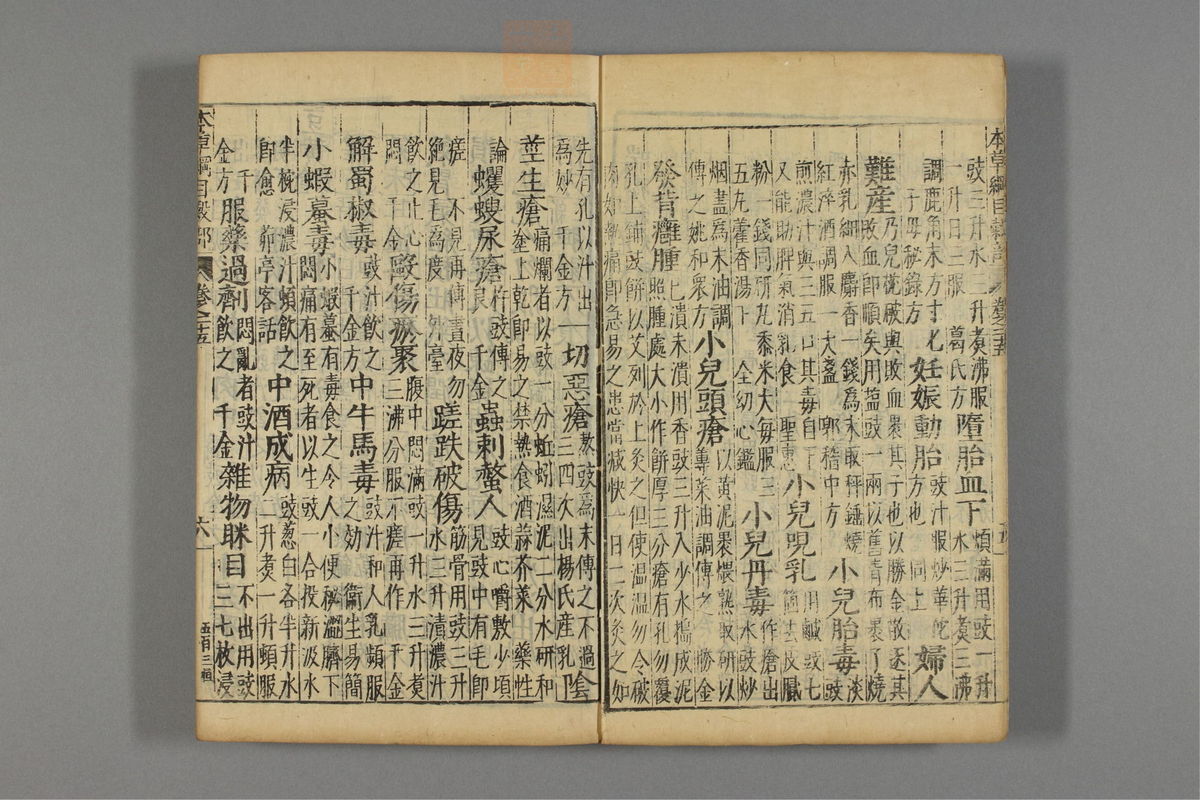 本草綱目穀部 卷之二十五
豉三升水三升煮沸服一升日三服 葛氏方 墮胎血下 煩滿用豉一升水三升煮三沸
調鹿角末方寸匕 子母秘錄方 妊娠動胎 豉汁服妙華佗方也 同上 婦人
難產 乃兒枕破與敗血裹其子也以勝金散逐其敗血即順矣用鹽豉一兩以舊青布裹了燒
赤乳細入麝香一錢為末取秤錘燒紅淬酒調服一大盞 郭稽中方 小兒胎毒 淡豉
煎濃汁與三五口其毒自下又能助脾氣消乳食 聖惠 小兒哯乳 用鹹豉七箇去皮膩
粉一錢同研丸黍米大每服三五丸藿香湯下 全幼心鑑 小兒丹毒 作瘡出水豉炒
烟盡爲末油調傅之 姚和衆方 小兒頭瘡 以黃泥裹煨熟取 蓴菜油調傅之 勝金
發背癰腫 已潰未潰用香豉三升入少水擣成泥照腫處大小作餅厚三分瘡有孔勿覆
孔上鋪豉餅以艾列於上灸之但使溫溫勿令破肉如熱痛即急易之患當減快一日二次灸之如
先有孔以汁出為妙 千金方 一切惡瘡 熬豉爲末傅之不過三四次出楊氏產乳 陰
莖生瘡 痛爛者以豉一分蚯蚓濕泥二分水研和塗上乾即易之禁熱食酒蒜芥菜 出藥性
論 蠼螋尿瘡 杵豉傅之良 千金 蟲刺螫人 豉心嚼敷少頃見豉中有毛即
瘥不見再傅晝夜勿絕見毛為度 外臺 蹉跌破傷 筋骨用豉三升水三升漬濃汁
飲之止心悶 千金 毆傷瘀聚 腹中悶滿豉一升水三升煮三沸分服不瘥再作 千金
解蜀椒毒 豉汁飲之 千金方 中牛馬毒 豉汁和人乳頻服之効 衞生易簡
小蝦蟇毒 小蝦蟇有毒食之令人小便秘澀臍下悶痛有至死者以生豉一合投新汲水
半椀浸濃汁頓飲之即愈 茆亭客話 中酒成病 豉葱白各半升水二升煮一升頓服
千金方 服藥過劑 悶亂者豉汁飲之 千金 雜物眯目 不出用豉三七枚浸
本草綱目穀部 卷之二十五 六